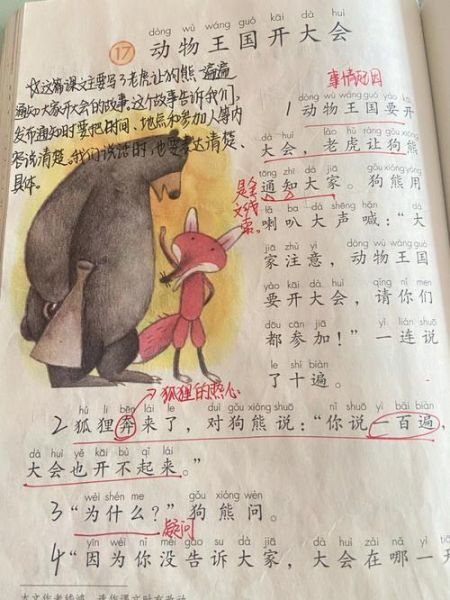 dòng wù wáng guó kāi dà huì
17 动物王国开大会
这篇课文主要写了老虎让狗熊一遍遍
通知大家开会的故事。这个故事告诉我们,
发布通知时要把时间、地点和参加人等内
容说清楚。我们说话时,也要表达清楚、
具体。
事情起因
dòng wù wáng guó yào kāi
1 动物王国要开
dà huì lǎo hǔ ràng gǒu xióng
大会,老虎让狗熊
tōng zhī dà jiā gǒu xióng yòng
通知大家。狗熊用
是全
文线
索。
lǎ ba dà shēng hǎn dà
喇叭大声喊:“大
jiā zhù yì dòng wù wáng guó
家注意,动物王国
yào kāi dà huì qǐng nǐ men
要开大会,请你们
dōu cān jiā yì lián shuō
都参加!”一连说
le shí biàn
了十遍。
狐狸的热心
hú li bēn lái le duì gǒu xióng shuō nǐ shuō yì bǎi biàn
2 狐狸奔来了,对狗熊说:“你说一百遍,
dà huì yě kāi bù qǐ lái
大会也开不起来。”
wèi shén me gǒu xióng wèn
3 “为什么?”狗熊问。
疑问
yīn wèi nǐ méi gào su dà jiā dà huì zài nǎ yì tiān
4 “因为你没告诉大家,大会在哪一天